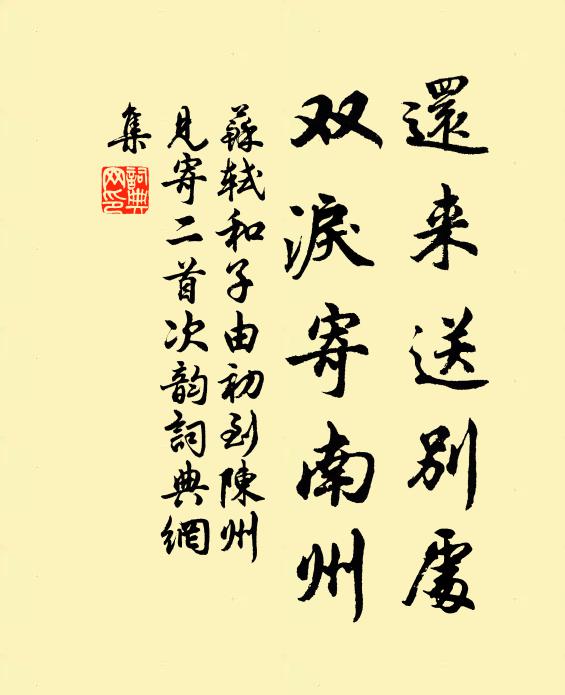 還来送別處
双淚寄南州
蘇軾和子由初到陳州
見寄二首次韵詞典網
集
詞典
网印